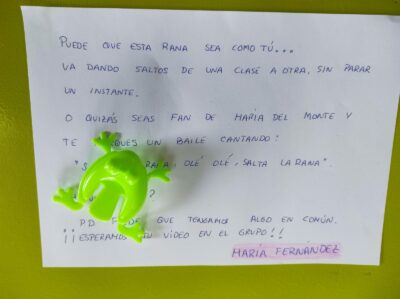 PUEDE QUE ESTA RANA SEA COMO TÚ...
VA DANDO SALTOS DE UNA CLASE A OTRA, SIN PARAR
UN INSTANTE.
O QUIZÁS SEAS FAN DE MARÍA DEL MONTE Y
TE UN BAILE CANTANDO:
OLÉ OLÉ, SALTA LA RANA".
?
P.D QUE TENGAMOS ALGO EN COMÚN.
¡¡ESPERAMOS TU VIDEO EN EL GRUPO!!
MARÍA FERNÁNDEZ